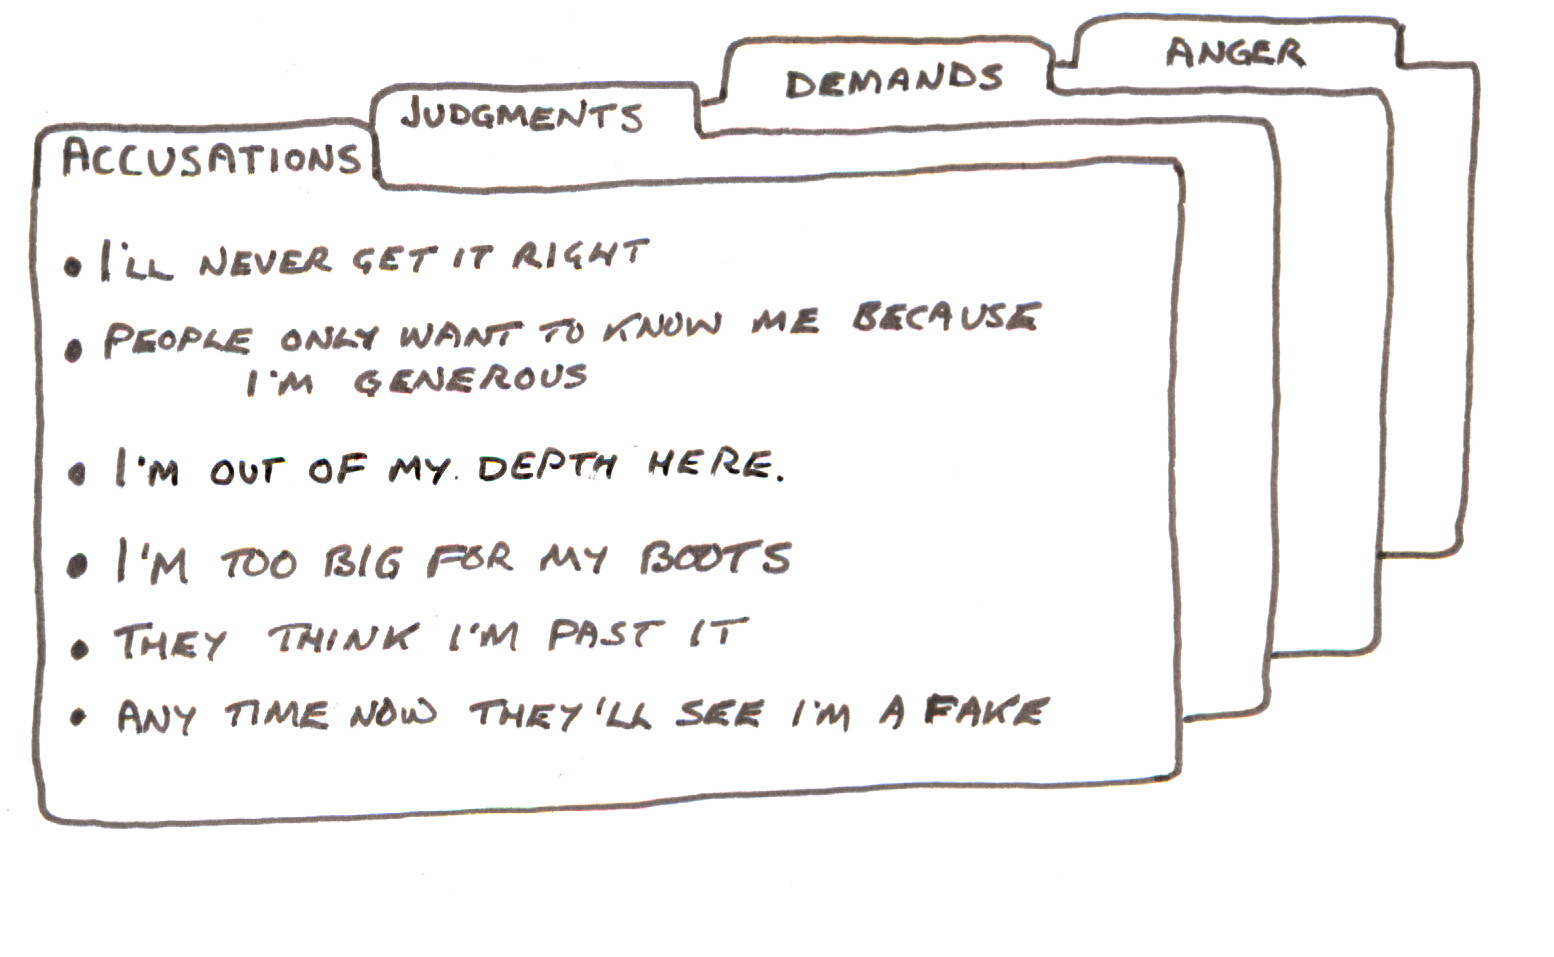 ANGER
DEMANDS
JUDGMENTS
ACCUSATIONS
• I'LL NEVER GET IT RIGHT
• PEOPLE ONLY WANT TO KNOW ME BECAUSE
I'M GENEROUS
• I'M OUT OF MY DEPTH HERE.
• I'M TOO BIG FOR MY BOOTS
• THEY THINK I'M PAST IT
• ANY TIME NOW THEY'LL SEE I'M A FAKE